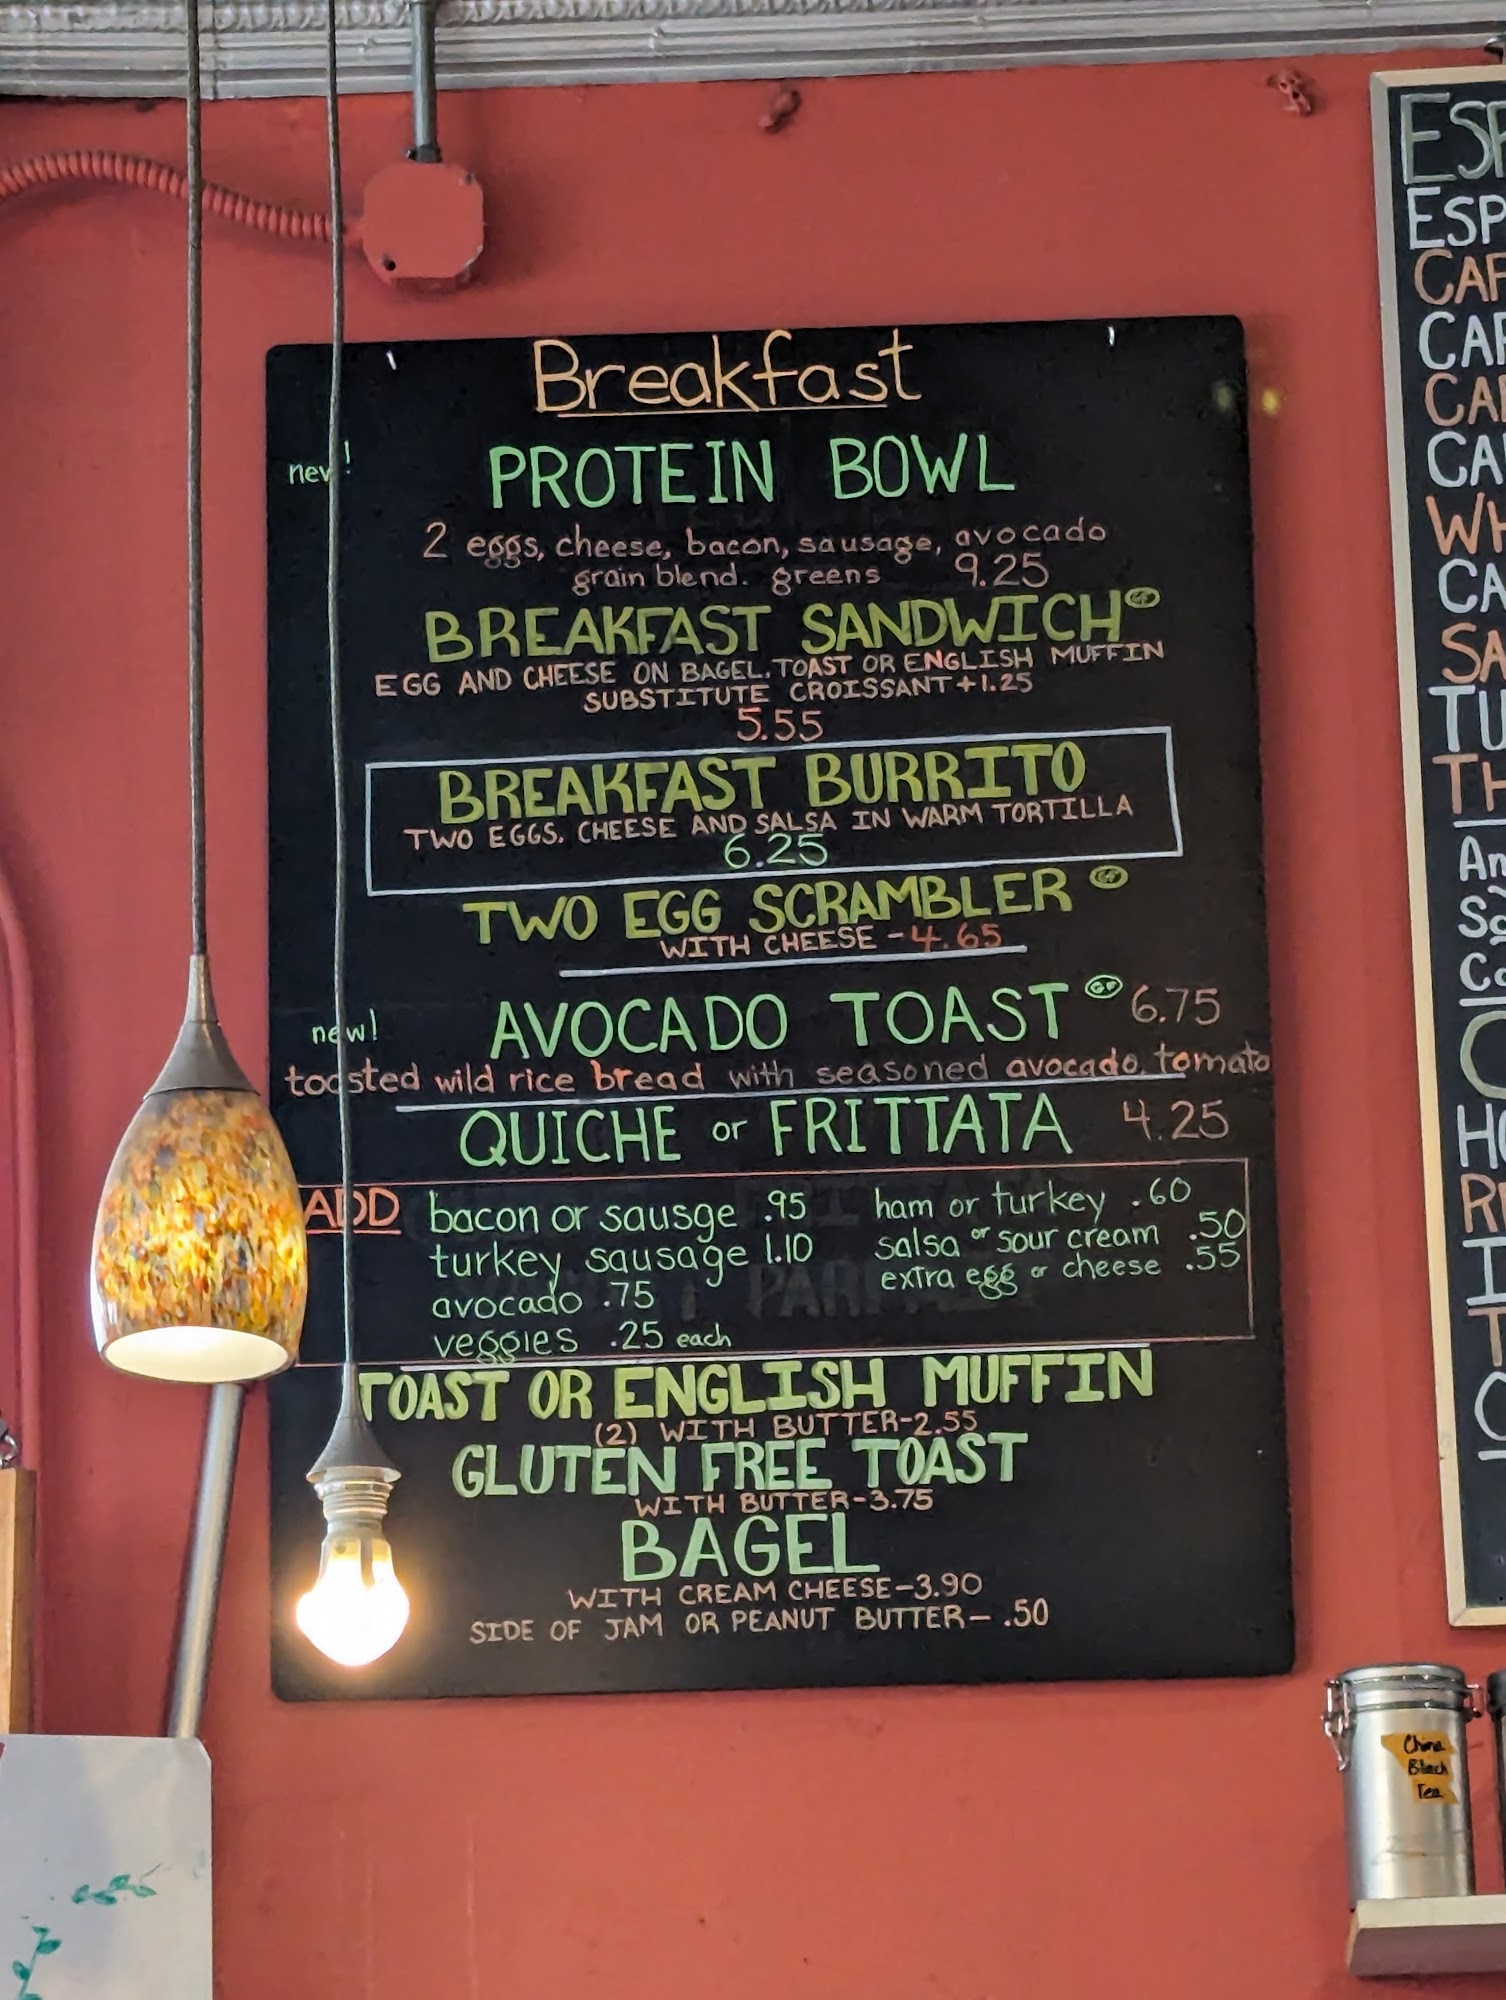 Breakfast
new!
PROTEIN BOWL
2 eggs, cheese, bacon, sausage, avocado
grain blend. greens 9.25
BREAKFAST SANDWICH GF
EGG AND CHEESE ON BAGEL, TOAST OR ENGLISH MUFFIN
SUBSTITUTE CROISSANT +1.25
5.55
BREAKFAST BURRITO
TWO EGGS, CHEESE AND SALSA IN WARM TORTILLA
6.25
TWO EGG SCRAMBLER GF
WITH CHEESE - 4.65
new!
AVOCADO TOAST GF 6.75
toasted wild rice bread with seasoned avocado, tomato
QUICHE or FRITTATA 4.25
ADD
bacon or sausge .95
turkey sausage 1.10
avocado .75
veggies .25 each
ham or turkey .60
salsa or sour cream .50
extra egg or cheese .55
TOAST OR ENGLISH MUFFIN
(2) WITH BUTTER-2.55
GLUTEN FREE TOAST
WITH BUTTER-3.75
BAGEL
WITH CREAM CHEESE-3.90
SIDE OF JAM OR PEANUT BUTTER- .50
China
Black
Tea